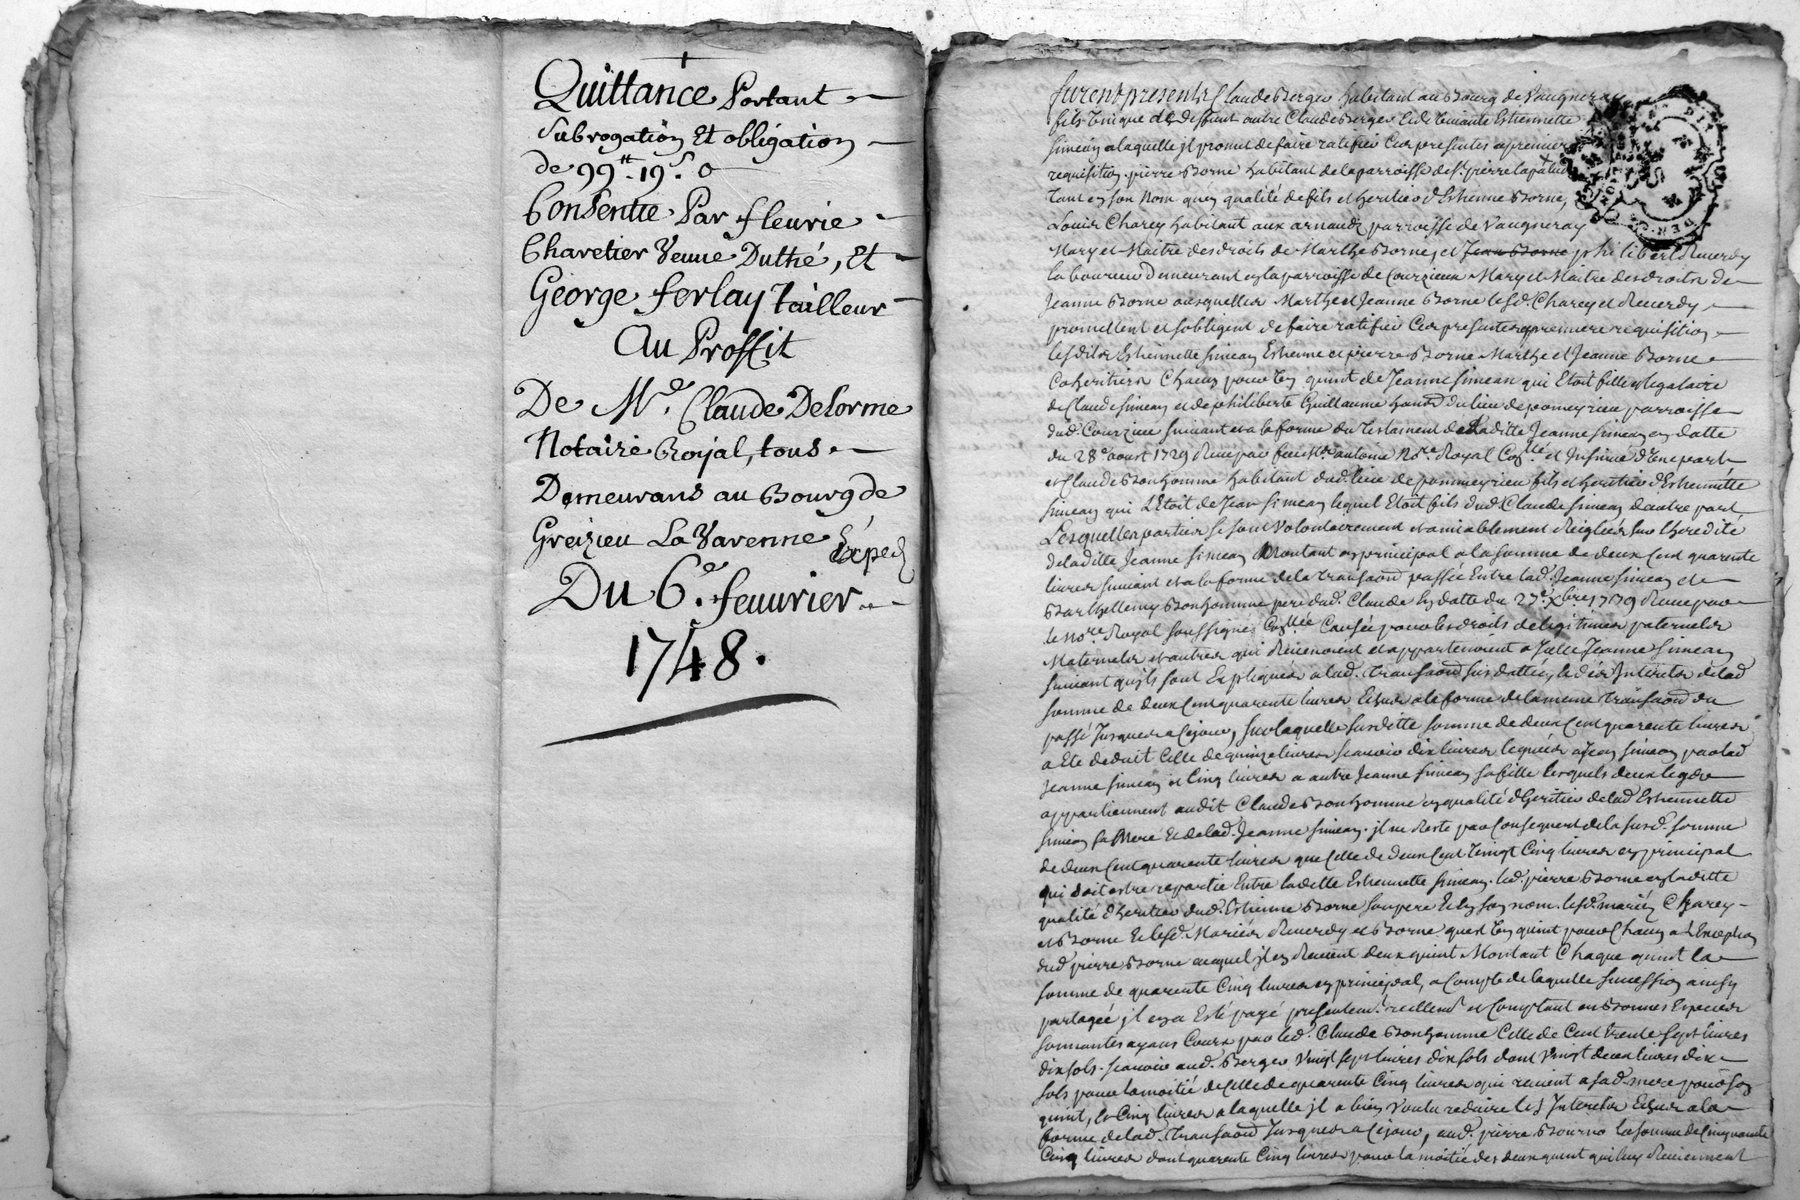 Quittance Portant
Subrogation Et obligation
de 99tt. 19s. 0
Consentie Par fleurie
Charetier Veuue Duthé, Et
George ferlay Tailleur
Au Proffit
De Me. Claude Delorme
Notaire Royal, tous
Demeurans au Bourg de
Greizieu La Varenne
Exped
Du 6e. feuurier
1748.
furent presents Claude Berger habitant au Bourg de Vaugneray
fils Unique de deffunt autre Claude Berger Et de Viuante Estiennette
Simean a laquelle jl promet de faire ratifier Ces presentes a premiere
requisition. pierre Borne habitant de la parroisse de St. pierre lapalud
Tant en son Nom qu'en qualité de fils et heritier d'Estienne Borne,
Louis Charey habitant aux arnauds parroisse de Vaugneray
Mary et Maitre des droits de Marthe Borne, et Jean Borne philibert Reuerdy
laboureur demeurant en la parroisse de Courzieu Mary et Maitre des droits de
Jeanne Borne ausquelles Marthe et Jeanne Borne lesd. Charey et Reuerdy
promettent et sobligent de faire ratifier Ces presentes a premiere requisition
lesdits Estiennette Simean Estienne et pierre Borne Marthe et Jeanne Borne
Coheritiers Chacun pour Un quint de Jeanne Simean qui Etoit fille et legataire
de Claude Simean et de philiberte Guillaume du lieu de pomeyrieu parroisse
dud. Courzieu suiuant et a la forme du Testament de Laditte Jeanne Simean en datte
du 28e aoust 1729 Receu par Nre. Royal et Insinué d'Une part
et Claude Bonhomme habitant dud. lieu de pommeyrieu fils et heritier d'Estiennette
Simean qui L'Etoit de Jean Simean lequel Etoit fils dud. Claude Simean dautre part,
Lesquelles parties se sont Volontairement et amiablement Reiglées sur Lheredité
de laditte Jeanne Simean Montant en principal a la somme de deux Cent quarente
liures suiuant et a la forme de la Transaon passée Entre lad. Jeanne Simean et
Barthellemy Bonhomme pere dud. Claude En datte du 27e. Xbre 1709 Receue par
le Nore. Royal soussigné Causée pour les droits de legitimes paternels
Maternels et autres qui Reuenoient et appartenoient a Jcelle Jeanne Simean
suiuant qu'ils sont Expliqués a lad. Transaon susdattée, Interets de lad
somme de deux Cent quarente liures Echus a la forme de la meme Transaon du
passé Jusques a Cejour, sur laquelle susditte somme de deux Cent quarente liures
a Eté deduit Celle de quinze liures scauoir dix liures leguées a Jean Simean par lad
Jeanne Simean et Cinq liures a autre Jeanne Simean sa fille lesquels deux legs
appartiennent audit Claude Bonhomme en qualité d'heritier de lad Estiennette
Simean sa Mere Et de lad. Jeanne Simean. jl ne Reste par Consequent de la susd. somme
de deux Cent quarente liures que Celle de deux Cent Vingt Cinq liures en principal
qui doit estre repartie Entre laditte Estiennette Simean. led. pierre Borne en laditte
qualité d'heritier dud. Estienne Borne son pere Et En son nom. lesd. mariés Charey
et Borne Et lesd. Mariés Reuerdy et Borne quest Un quint pour Chacun a L'Exception
dud pierre Borne auquel jl en Reuient deux quint Montant Chaque quint la
somme de quarente Cinq liures en principal, a Compte de laquelle succession ainsy
partagée jl en a Esté payé presentemt. reellemt. et Comptant en Bonnes Especes
sonnantes ayans Cours par led. Claude Bonhomme Celle de Cent trente sept liures
dix sols. scauoir aud. Berger Vingt sept liures dix sols dont Vingt deux liures dix
sols pour la moitié de Celle de quarente Cinq liures qui reuient a sad. mere pour son
quint, Et Cinq liures a laquelle jl a bien Voulu reduire les Interets Echus a la
forme de lad. Transaon Jusques a Cejour, aud. pierre Bourne la somme de Cinquante
Cinq liures dont quarente Cinq liures pour la moitié des deux quint qui luy Reuiennent